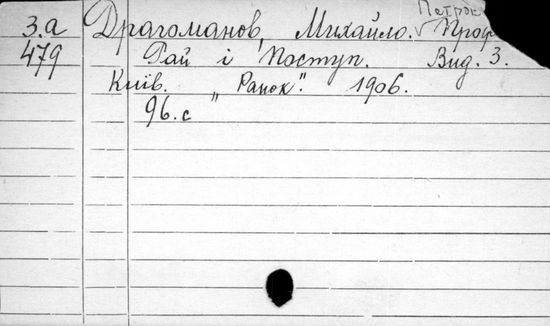 Петро
3.а Драгоманов, Михайло. Проф
479 Рай і Поступ. Вид. 3.
Київ. „Ранок". 1906.
96.с